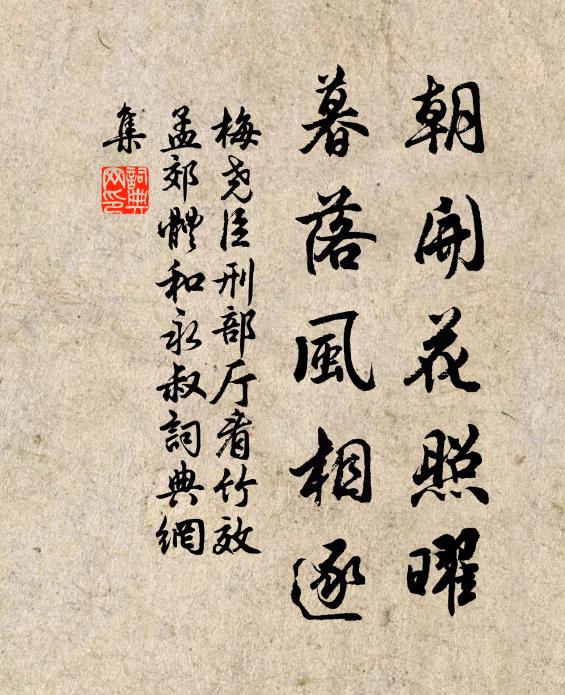 朝開花照曜
暮落風相逐
梅堯臣刑部厅看竹效
孟郊體和永叔詞典網
集
詞典网印